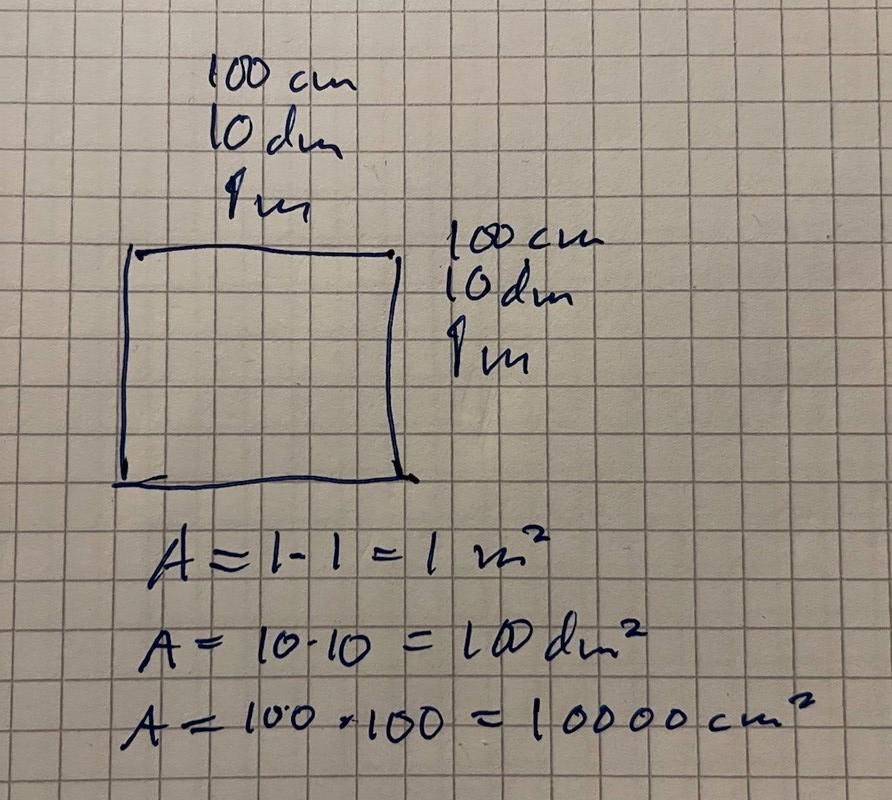 100 cm
10 dm
1 m
100 cm
10 dm
1 m
A = 1 - 1 = 1 m²
A = 10 · 10 = 100 dm²
A = 100 · 100 = 10000 cm²